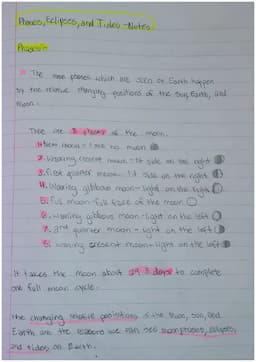 Phases, Eclipses, and Tides - Notes
Phases:-
The moon phases which are seen on Earth happen
by the relative changing positions of the Sun, Earth, and
moon.
There are 8 phases of the moon.
1. New moon - no moon
2. Waxing cresent moon - lit side on the right
3. First quarter moon - lit side on the right
4. Waxing gibbous moon - light on the right
5. Full moon - full face of the moon
6. Waning gibbous moon - light on the left
7. 3rd quarter moon - light on the left
8. waning cresent moon - light on the left
It takes the moon about 29.5 days to complete
one full moon cycle.
The changing relative positions of the moon, sun, and
Earth are the reasons we can see moon phases, eclipses,
and tides on Earth.